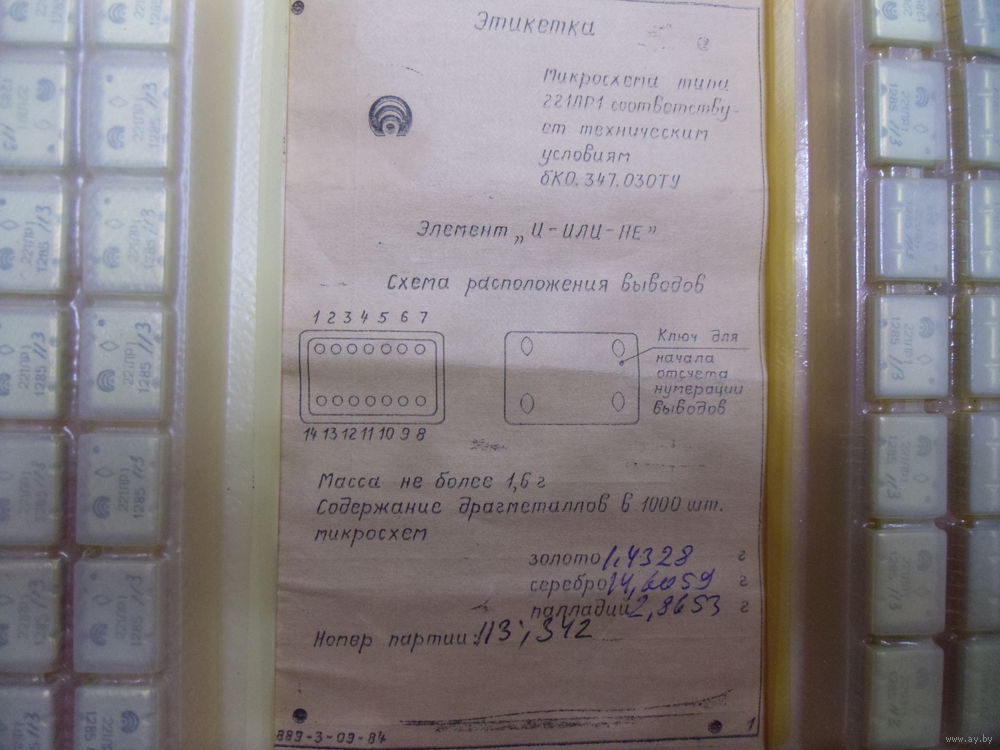 Этикетка
Микросхема типа
221ЛР1 соответству-
ет техническим
условиям
бК0.347.030ТУ
Элемент „И-ИЛИ-НЕ”
Схема расположения выводов
1 2 3 4 5 6 7
14 13 12 11 10 9 8
Ключ для
начала
отсчета
нумерации
выводов
Масса не более 1,6 г
Содержание драгметаллов в 1000 шт.
микросхем
золото 1,4328 г
серебро г
палладий 2,8653 г
Номер партии: 113; 312
889-3-09-84
1
221ЛР1
1285
113
www.ay.by